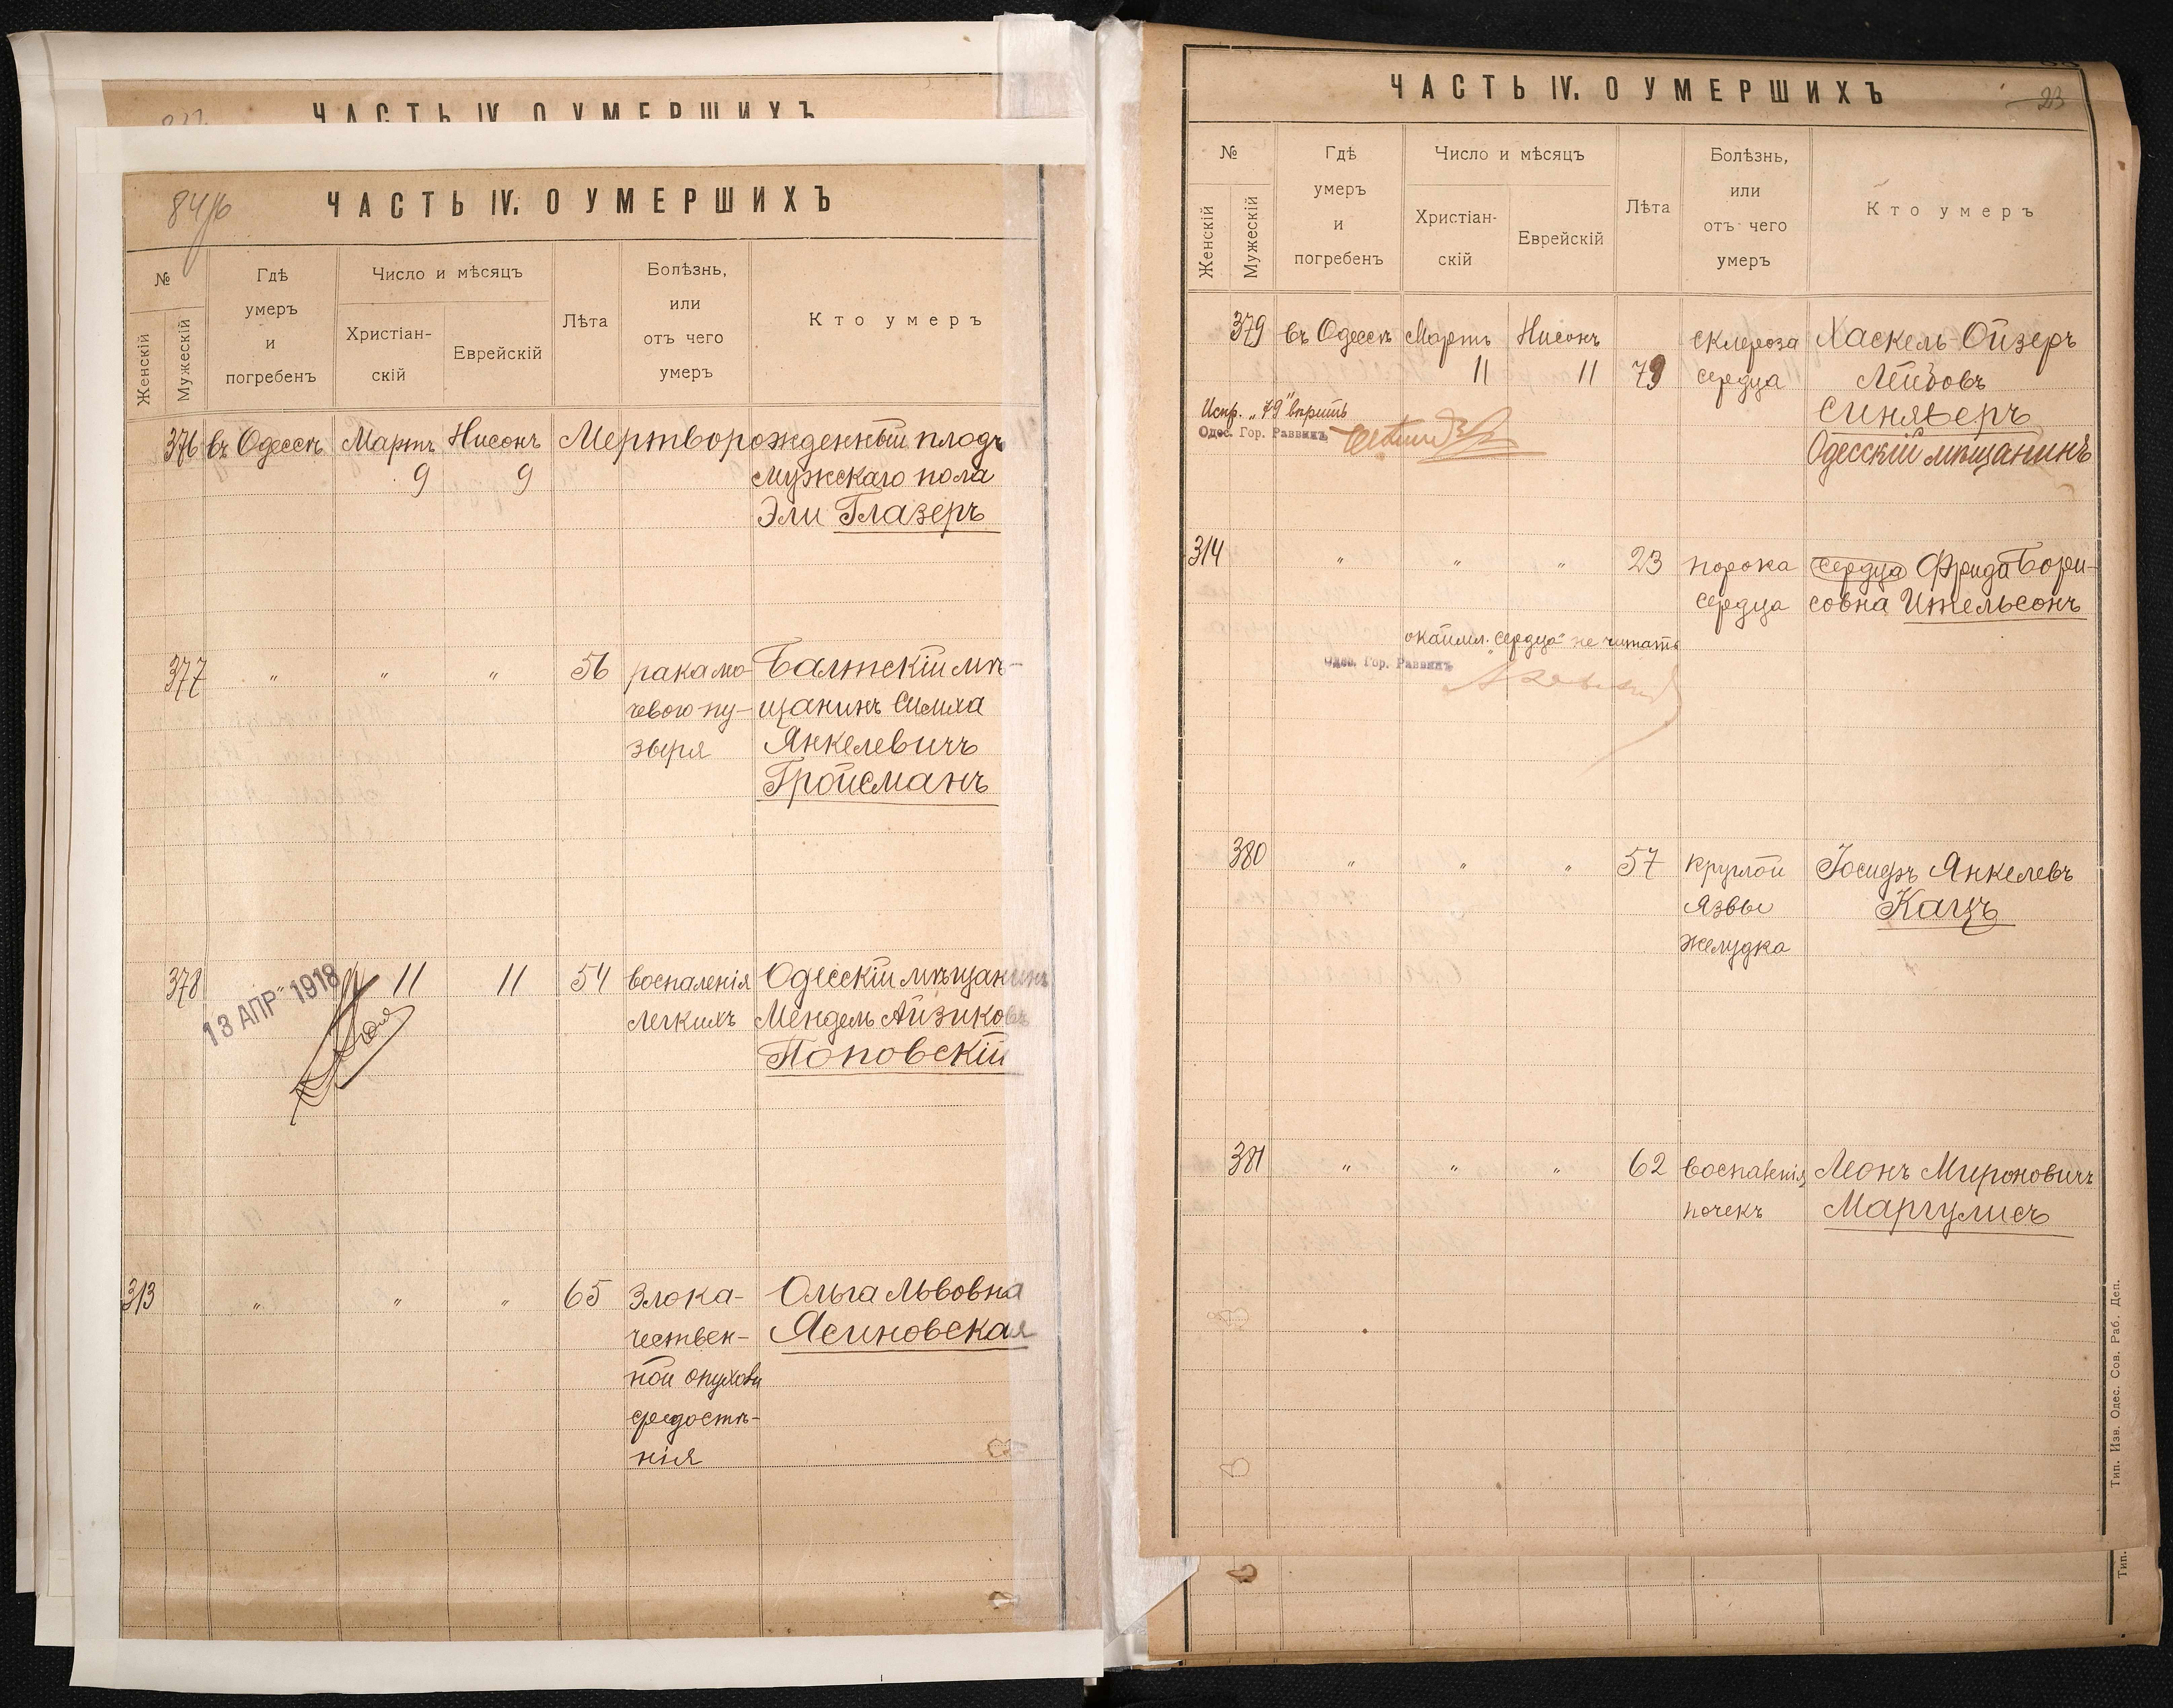 ЧАСТЬ IV. О УМЕРШИХЪ
84/16
ЧАСТЬ IV. О УМЕРШИХЪ
№
Женскій
Мужескій
Гдѣ
умеръ
и
погребенъ
Число и мѣсяцъ
Христіан-
скій
Еврейскій
Лѣта
Болѣзнь,
или
отъ чего
умеръ
Кто умеръ
376 въ Одессѣ Мартъ Нисонъ Мертворожденный плодъ
9 9 мужскаго пола
Эли Глазеръ
377 " " " 56 рака мо- Балтскій мѣ-
чевого пу- щанинъ Симха
зыря Янкелевичъ
Гройсманъ
378 " 11 11 54 воспаленія Одесскій мѣщанинъ
13 АПР 1918
легкихъ Мендель Айзиковъ
Поповскій
313 " " " 65 злока- Ольга Львовна
чествен- Ясиновская
ной опухоли
средостѣ-
нія
ЧАСТЬ IV. О УМЕРШИХЪ
23
№
Женскій
Мужескій
Гдѣ
умеръ
и
погребенъ
Число и мѣсяцъ
Христіан-
скій
Еврейскій
Лѣта
Болѣзнь,
или
отъ чего
умеръ
Кто умеръ
379 въ Одессѣ Мартъ Нисонъ склероза Хаскель-Ойзеръ
11 11 79 сердца Лейбовъ
Испр. „79" вѣрить Синяверъ
Одес. Гор. Раввинъ
Одесскій мѣщанинъ
314 " " " 23 порока сердца Фрида Бори-
сердца совна Ительсонъ
окаймл. „сердца" не читать
Одес. Гор. Раввинъ
380 " " " 57 круглой Іосифъ Янкелевъ
язвы Кацъ
желудка
381 " " " 62 воспаленія Леонъ Мироновичъ
почекъ Маргулисъ
Тип. Изв. Одес. Сов. Раб. Деп.
Тип.